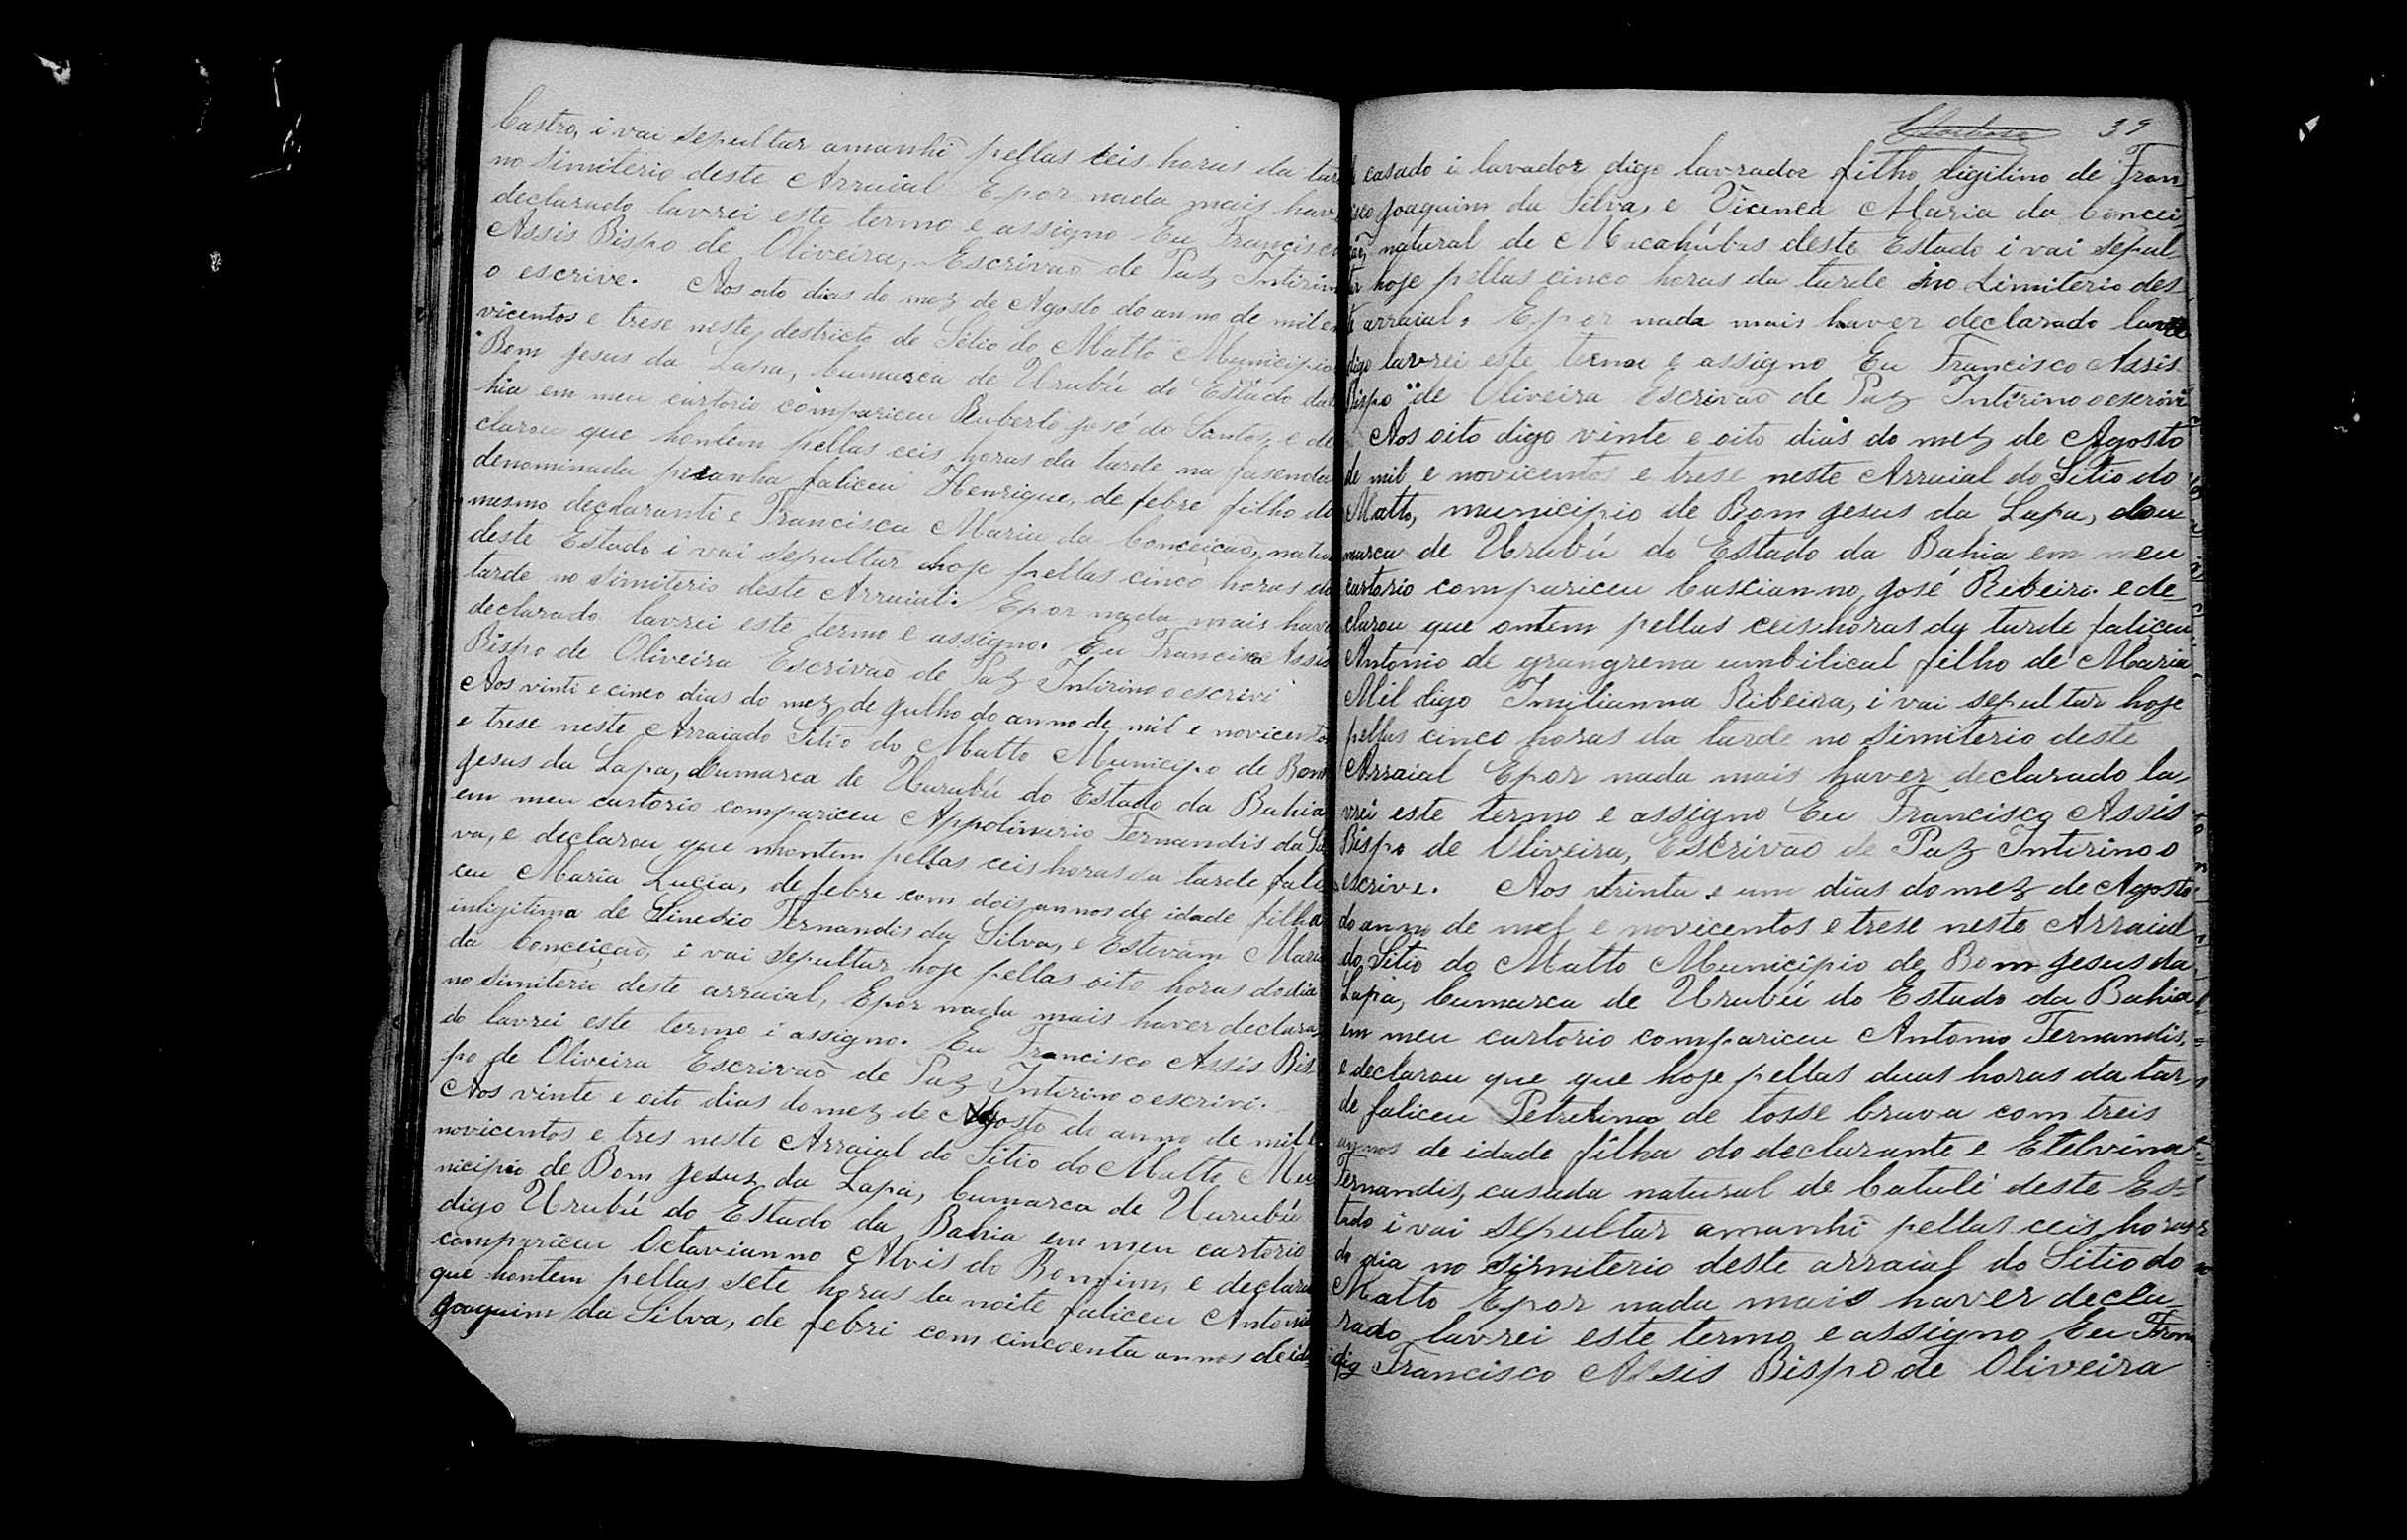 Castro, i vai sepultar amanhi pellas ceis horas da tar
no simiterio deste Arraial Epor nada mais hav
declarado lavrei este termo e assigno Eu Francisco
Assis Bispo de Oliveira, Escrivaõ de Paz Intirin
o escrive. Aos oito dias do mez de Agosto do anno de mil e
vicentos e trese neste destricto de Sitio do Matto Municipio
Bom Jesus da Lapa, Cumarca de Urubú do Estado da
hia em meu cartorio compariceu Ruberto José do Santos, e de
clarou que hontem pellas ceis horas da tarde na fasenda
denominada piranha faliceu Henrique, de febre filho do
mesmo declaranti e Francisca Maria da Conceicaõ, natu
deste Estado i vai sepultar hoje pellas cinco horas da
tarde no simiterio deste Arraial. Epor nada mais have
declarado lavrei este termo e assigno. Eu Francisco Assis
Bispo de Oliveira Escrivaõ de Paz Intirino o escrivi
Aos vinti e cinco dias do mez de Julho do anno de mil e novicentos
e trese neste Arraiado Sitio do Matto Municipo de Bom
Jesus da Lapa, Cumarca de Uurubú do Estado da Bahia
em meu cartorio compariceu Appolinirio Fernandis da Sil
va, e declarou que hontem pellas ceis horas da tarde fali
ceu Maria Lucia, de febre com dois annos de idade filha
inligitima de Sinesio Fernandis da Silva, e Estevam Maria
da Conceiçaõ, i vai sepultar hoje pellas oito horas do dia
no simiterio deste arraial, Epor nada mais haver declara
do lavrei este termo i assigno. Eu Francisco Assis Bis
po de Oliveira Escrivaõ de Paz Intirino o escrivi.
Aos vinte e oito dias do mez de Agosto do anno de mil e
novicentos e tres neste Arraial do Sitio do Matto Mu
nicipio de Bom Jesus da Lapa, Cumarca de Uurubú
digo Urubú do Estado da Bahia em meu cartorio
compariceu Octavianno Alvis do Bomfim, e declarou
que hontem pellas sete horas da noite faliceu Antonio
Joaquim da Silva, de febri com cincoenta annos de ida
39
casado i lavador digo lavrador filho ligitino de Fran
cisco Joaquim da Silva, e Vicenca Maria da Concei
natural de Macahúbas deste Estado i vai sepul
tar hoje pellas cinco horas da tarde no simiterio des
te arraial. Epor nada mais haver declarado
digo lavrei este termo e assigno Eu Francisco Assis
Bispo de Oliveira Escrivaõ de Paz Intirino o escrivi
Aos oito digo vinte e oito dias do mez de Agosto
de mil e novicentos e trese neste Arraial do Sitio do
Matto, municipio de Bom Jesus da Lapa,
marca de Urubú do Estado da Bahia em meu
cartorio compariceu Cascianno José Ribeiro. e de
clarou que ontem pellas ceis horas da tarde faliceu
Antonio de grangrena umbilical filho de Maria
Mil digo Imilianna Ribeira, i vai sepultar hoje
pellas cinco horas da tarde no simiterio deste
Arraial Epor nada mais haver declarado la
vrei este termo e assigno Eu Francisco Assis
Bispo de Oliveira, Escrivaõ de Paz Intirino o
escrive. Aos trinta e um dias do mez de Agosto
do anno de mil e novicentos e trese neste Arraial
do Sitio do Matto Municipio de Bom Jesus da
Lapa, Cumarca de Urubú do Estado da Bahia
em meu cartorio compariceu Antonio Fernandis,
e declarou que que hoje pellas duas horas da tar
de faliceu Petrolina de tosse brava com treis
annos de idade filha do declarante e Etelvina
Fernandis, casada natural de Catulé deste Es
tado i vai sepultar amanhi pellas ceis horas
do dia no simiterio deste arraial do Sitio do
Matto Epor nada mais haver decla
rado lavrei este termo e assigno Eu Fran
dig Francisco Assis Bispo de Oliveira